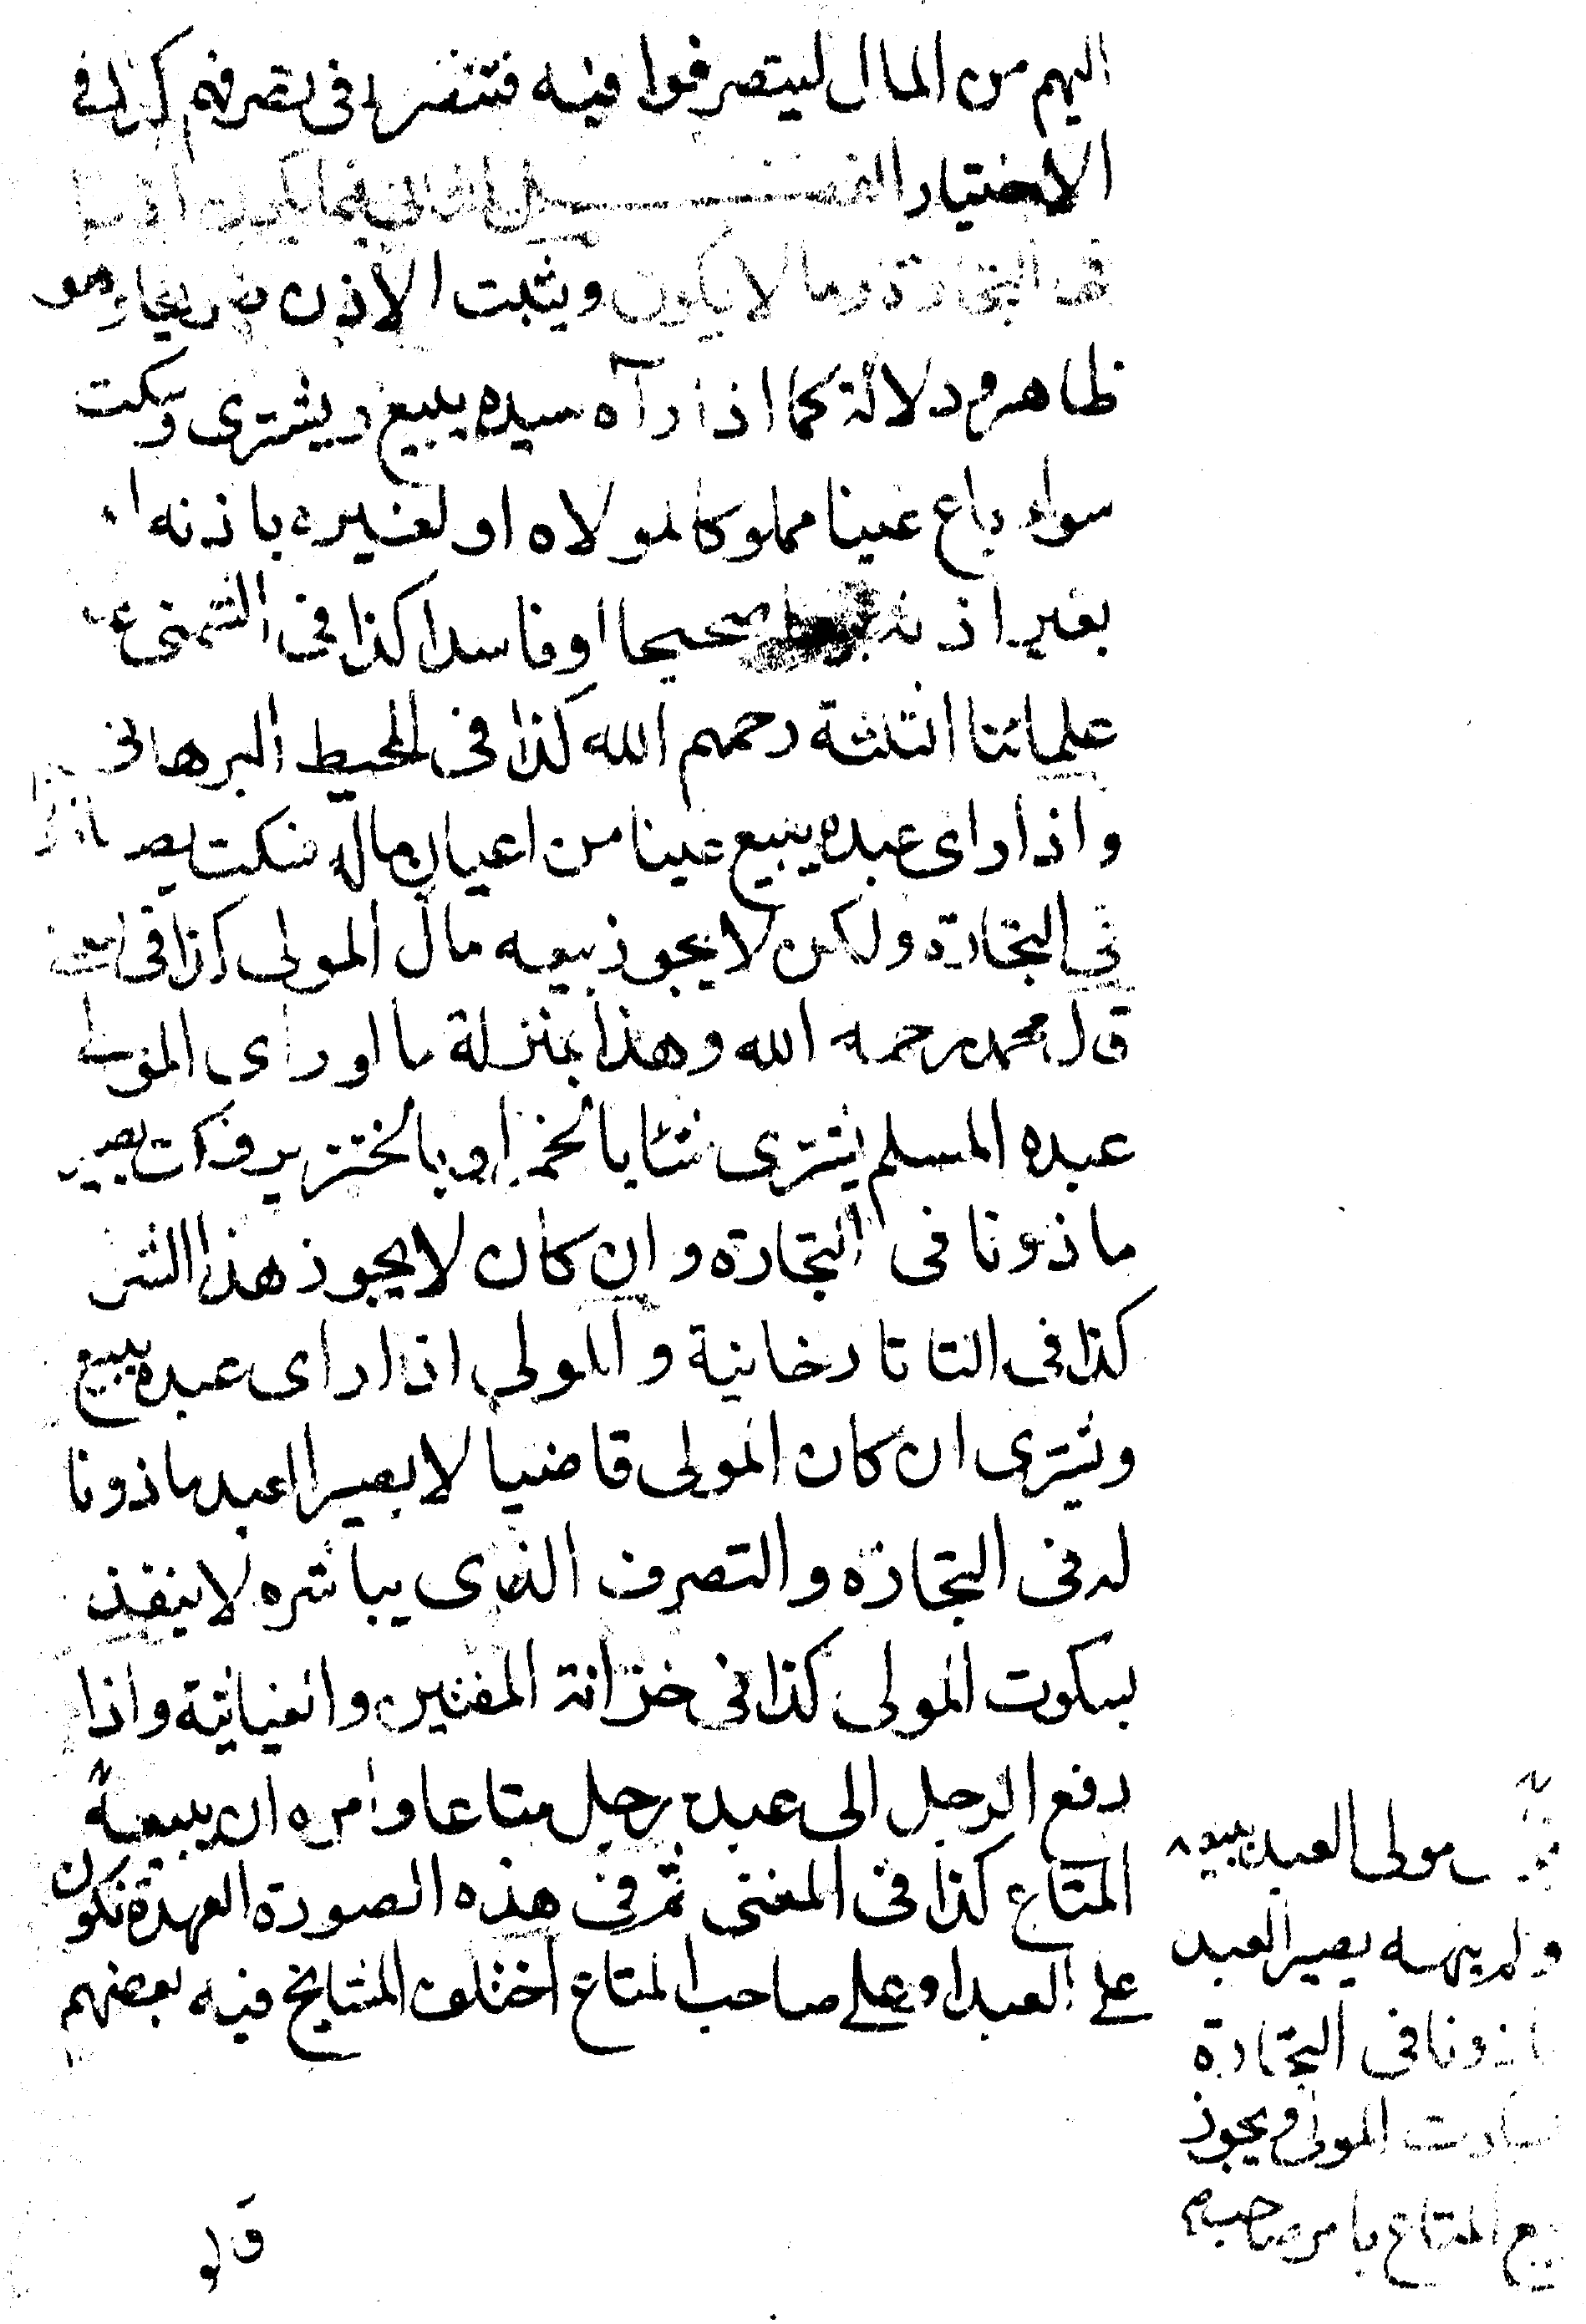 اليهم من المال ليتصرفوا فيه فتنفرد في تصرفهم كذا في
الاختيار الفصل الثاني فيما يكون اذنا
في التجارة وما لا يكون ويثبت الاذن صريحا وهو
ظاهر ودلالة كما اذا رآه سيده يبيع ويشترى وسكت
سواء باع عينا مملوكا لمولاه او لغيره باذنه او
بغير اذنه صحيحا او فاسدا كذا في الشمنى
علمائنا الثلثة رحمهم الله كذا فى المحيط البرهانى
واذا راى عبده يبيع عينا من اعيان ماله فسكت يصير
في التجارة ولكن لا يجوز بيعه مال المولى كذا فى
قال محمد رحمه الله وهذا بمنزلة ما لو راى المولى
عبده المسلم يشترى شئا بالخمر او بالخنزير وسكت يصير
ماذونا فى التجارة وان كان لا يجوز هذا الشر
كذا فى التاتارخانية والمولى اذا راى عبده يبيع
ويشترى ان كان المولى قاضيا لا يصير العبد ماذونا
له فى التجارة والتصرف الذى يباشره لا ينفذ
بسكوت المولى كذا فى خزانة المفتين والغياثية واذا
دفع الرجل الى عبد رجل متاعا وامره ان يبيعه
المتاع كذا فى المغنى ثم فى هذه الصورة العهدة تكون
على العبد او على صاحب المتاع اختلف المشايخ فيه بعضهم
مولى العبد يبيعه
ولم ينهه يصير العبد
ماذونا فى التجارة
المولى ويجوز
بيع المتاع بامر صاحبه